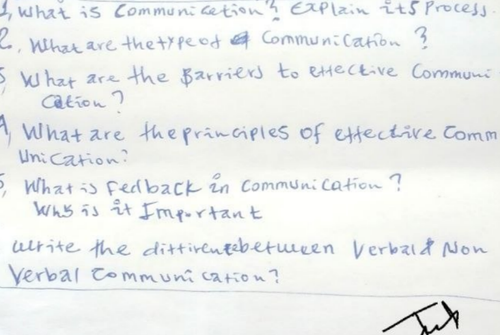 1, What is Communication? Explain its Process.
2, What are the type of Communication ?
3, What are the Barriers to effective Communi
cation ?
4, What are the principles of effective Comm
unication?
5, What is Fedback in Communication ?
Why is it Important
write the diffirence between Verbal & Non
Verbal Communication ?